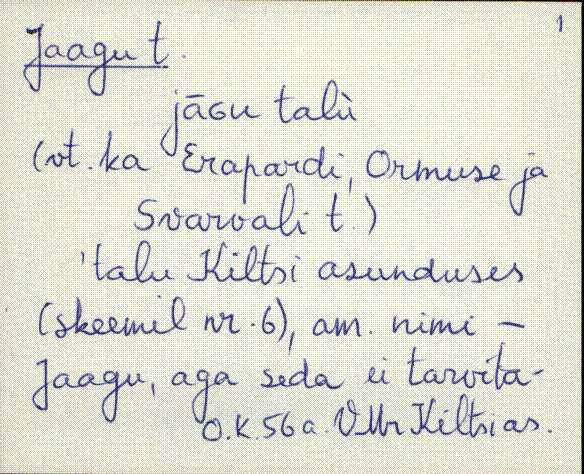 1
Jaagu t.
jāGu talù
(vt. ka Erapardi, Ormuse ja
Svarvali t.)
'talu Kiltsi asunduses
(skeemil nr. 6), am. nimi –
Jaagu, aga seda ei tarvita-
O.K. 56 a. VMr Kiltsi as.